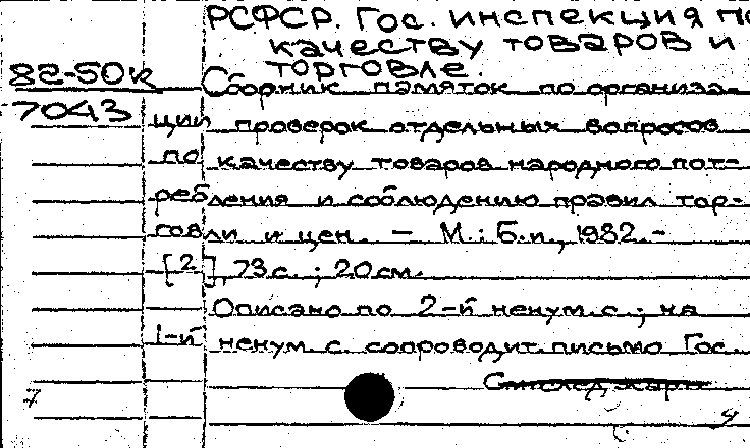 РСФСР. Гос. инспекция по
качеству товаров и
торговле.
82-50к
7043
Сборник памяток по организа-
ции проверок отдельных вопросов
по качеству товаров народного пот-
ребления и соблюдению правил тор-
говли и цен. – М.: Б.и., 1982.–
[2], 73 с. ; 20 см.
Описано по 2-й ненум. с. ; на
1-й ненум с. сопроводит. письмо Гос.